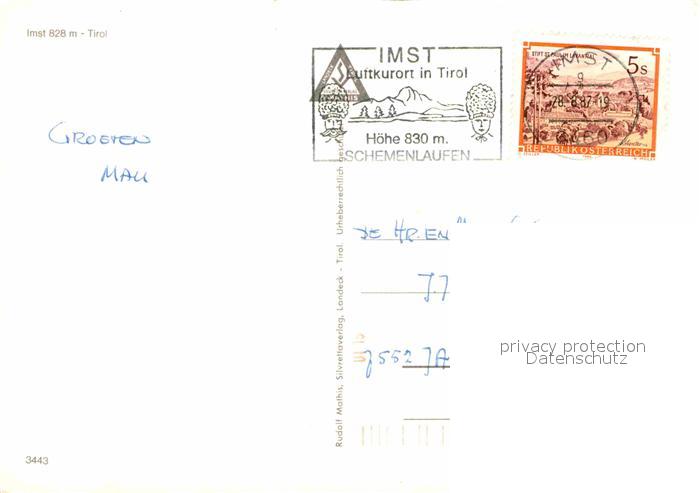 Imst 828 m - Tirol
IMST
Luftkurort in Tirol
Höhe 830 m.
SCHEMENLAUFEN
STIFT ST. PAUL IM LAVANTTAL
5s
IMST
28.8.87-19
REPUBLIK ÖSTERREICH
GROETEN
MAU
DE HR. EN
7552 JA
privacy protection
Datenschutz
Rudolf Mathis, Silvrettaverlag, Landeck - Tirol. Urheberrechtlich
3443